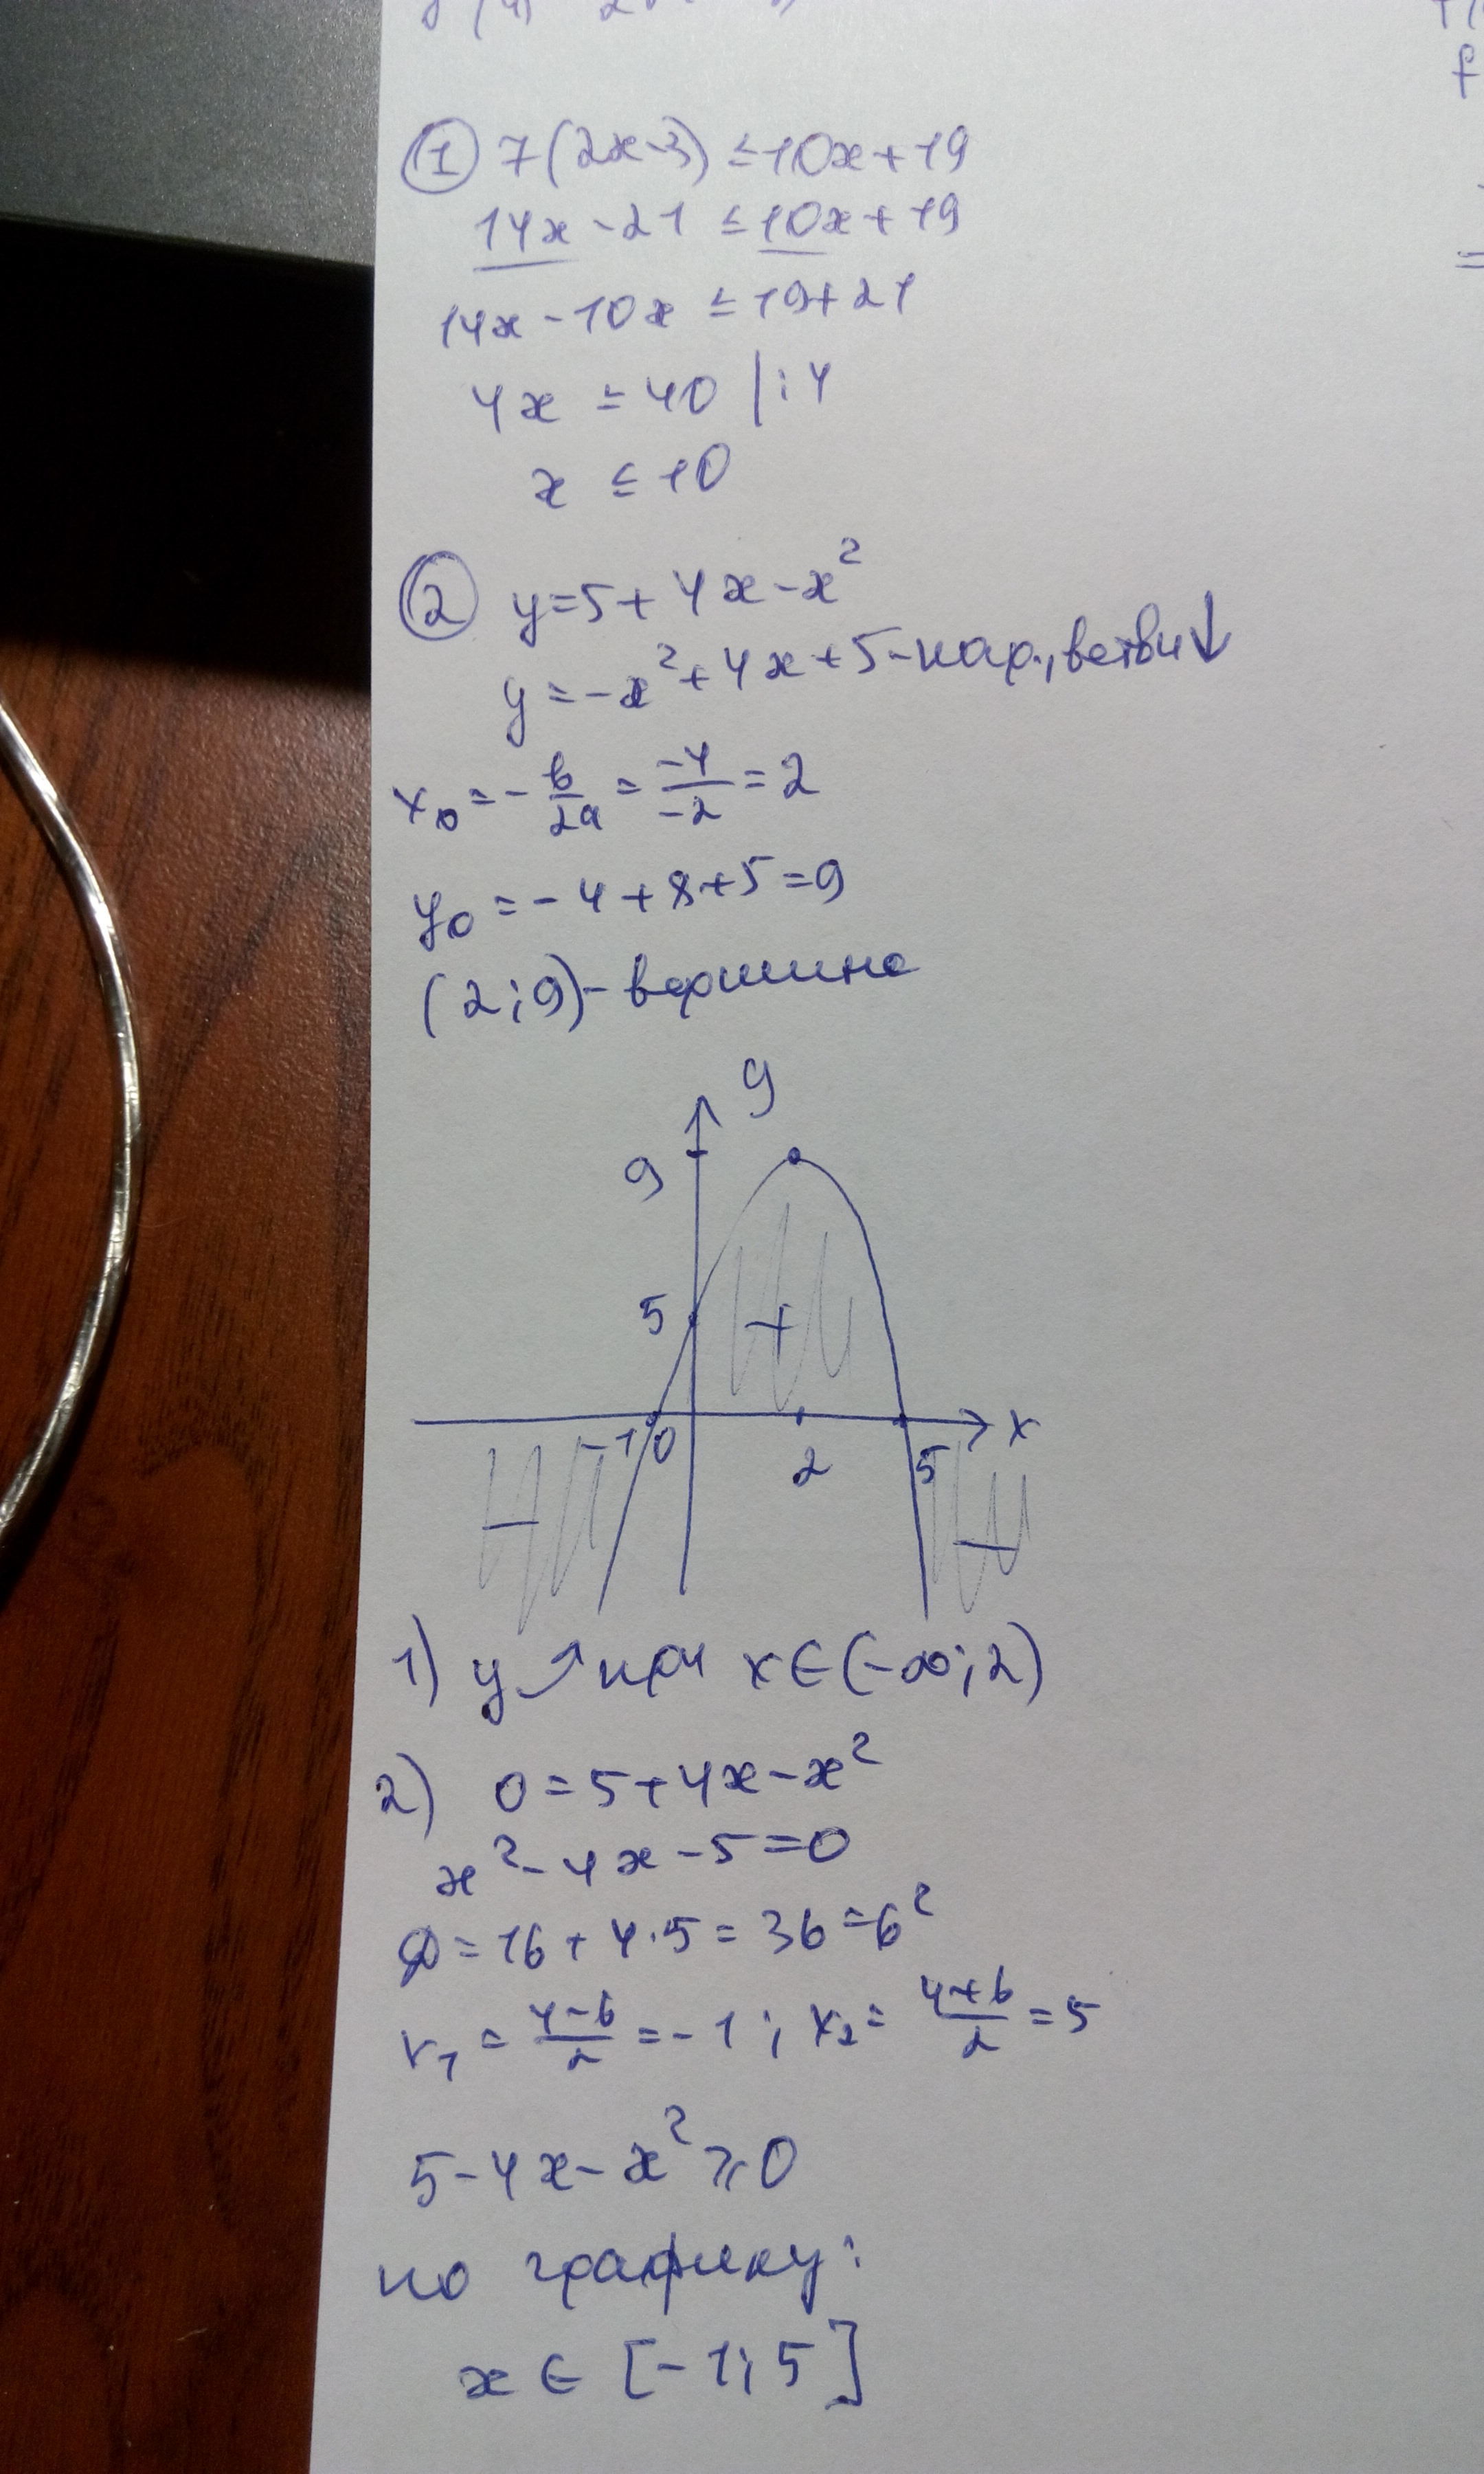 ① 7(2x-3) ≤ 10x+19
14x-21 ≤ 10x+19
14x-10x ≤ 19+21
4x ≤ 40 |:4
x ≤ 10
② y=5+4x-x²
y=-x²+4x+5-пар., ветви↓
x₀=-b/2a=-4/-2=2
y₀=-4+8+5=9
(2;9)-вершина
y
9
5
+
-1 0 2 5 x
- -
1) y ↗ при x∈(-∞;2)
2) 0=5+4x-x²
x²-4x-5=0
D=16+4·5=36=6²
x₁=(4-6)/2=-1; x₂=(4+6)/2=5
5-4x-x²≥0
по графику:
x∈[-1;5]